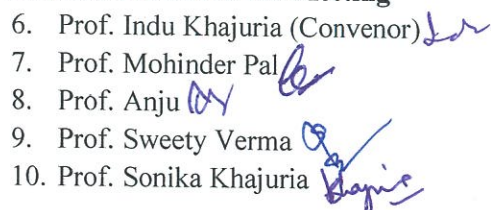 6. Prof. Indu Khajuria (Convenor)
7. Prof. Mohinder Pal
8. Prof. Anju
9. Prof. Sweety Verma
10. Prof. Sonika Khajuria